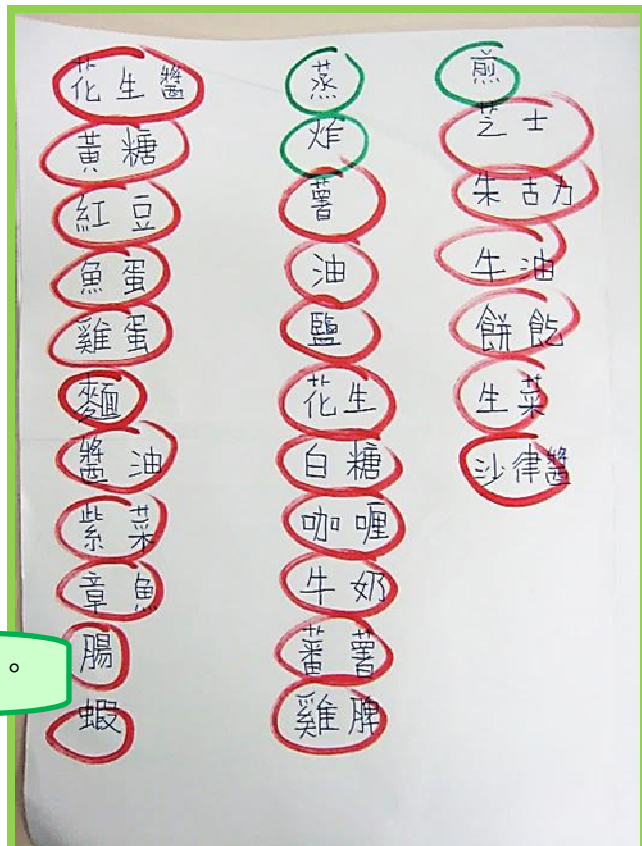 花生醬
黃糖
紅豆
魚蛋
雞蛋
麵
醬油
紫菜
章魚
腸
蝦
蒸
炸
薯
油
鹽
花生
白糖
咖喱
牛奶
蕃薯
雞脾
煎
芝士
朱古力
牛油
餅飢
生菜
沙律醬
。